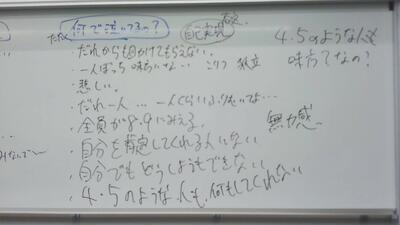 何で泣いてるの?
自己実現
・だれからも目かけてもらえない。
・一人ぼっち 味方いない こりつ 孤立
・悲しい。
・だれ一人…一人くらい
・全員が8・9にみえる
・自分を肯定してくれる人いない
・自分でもどうしようもできない
・4・5のような人も、何もしてくれない
4・5のような人も
味方でなの?
無力感